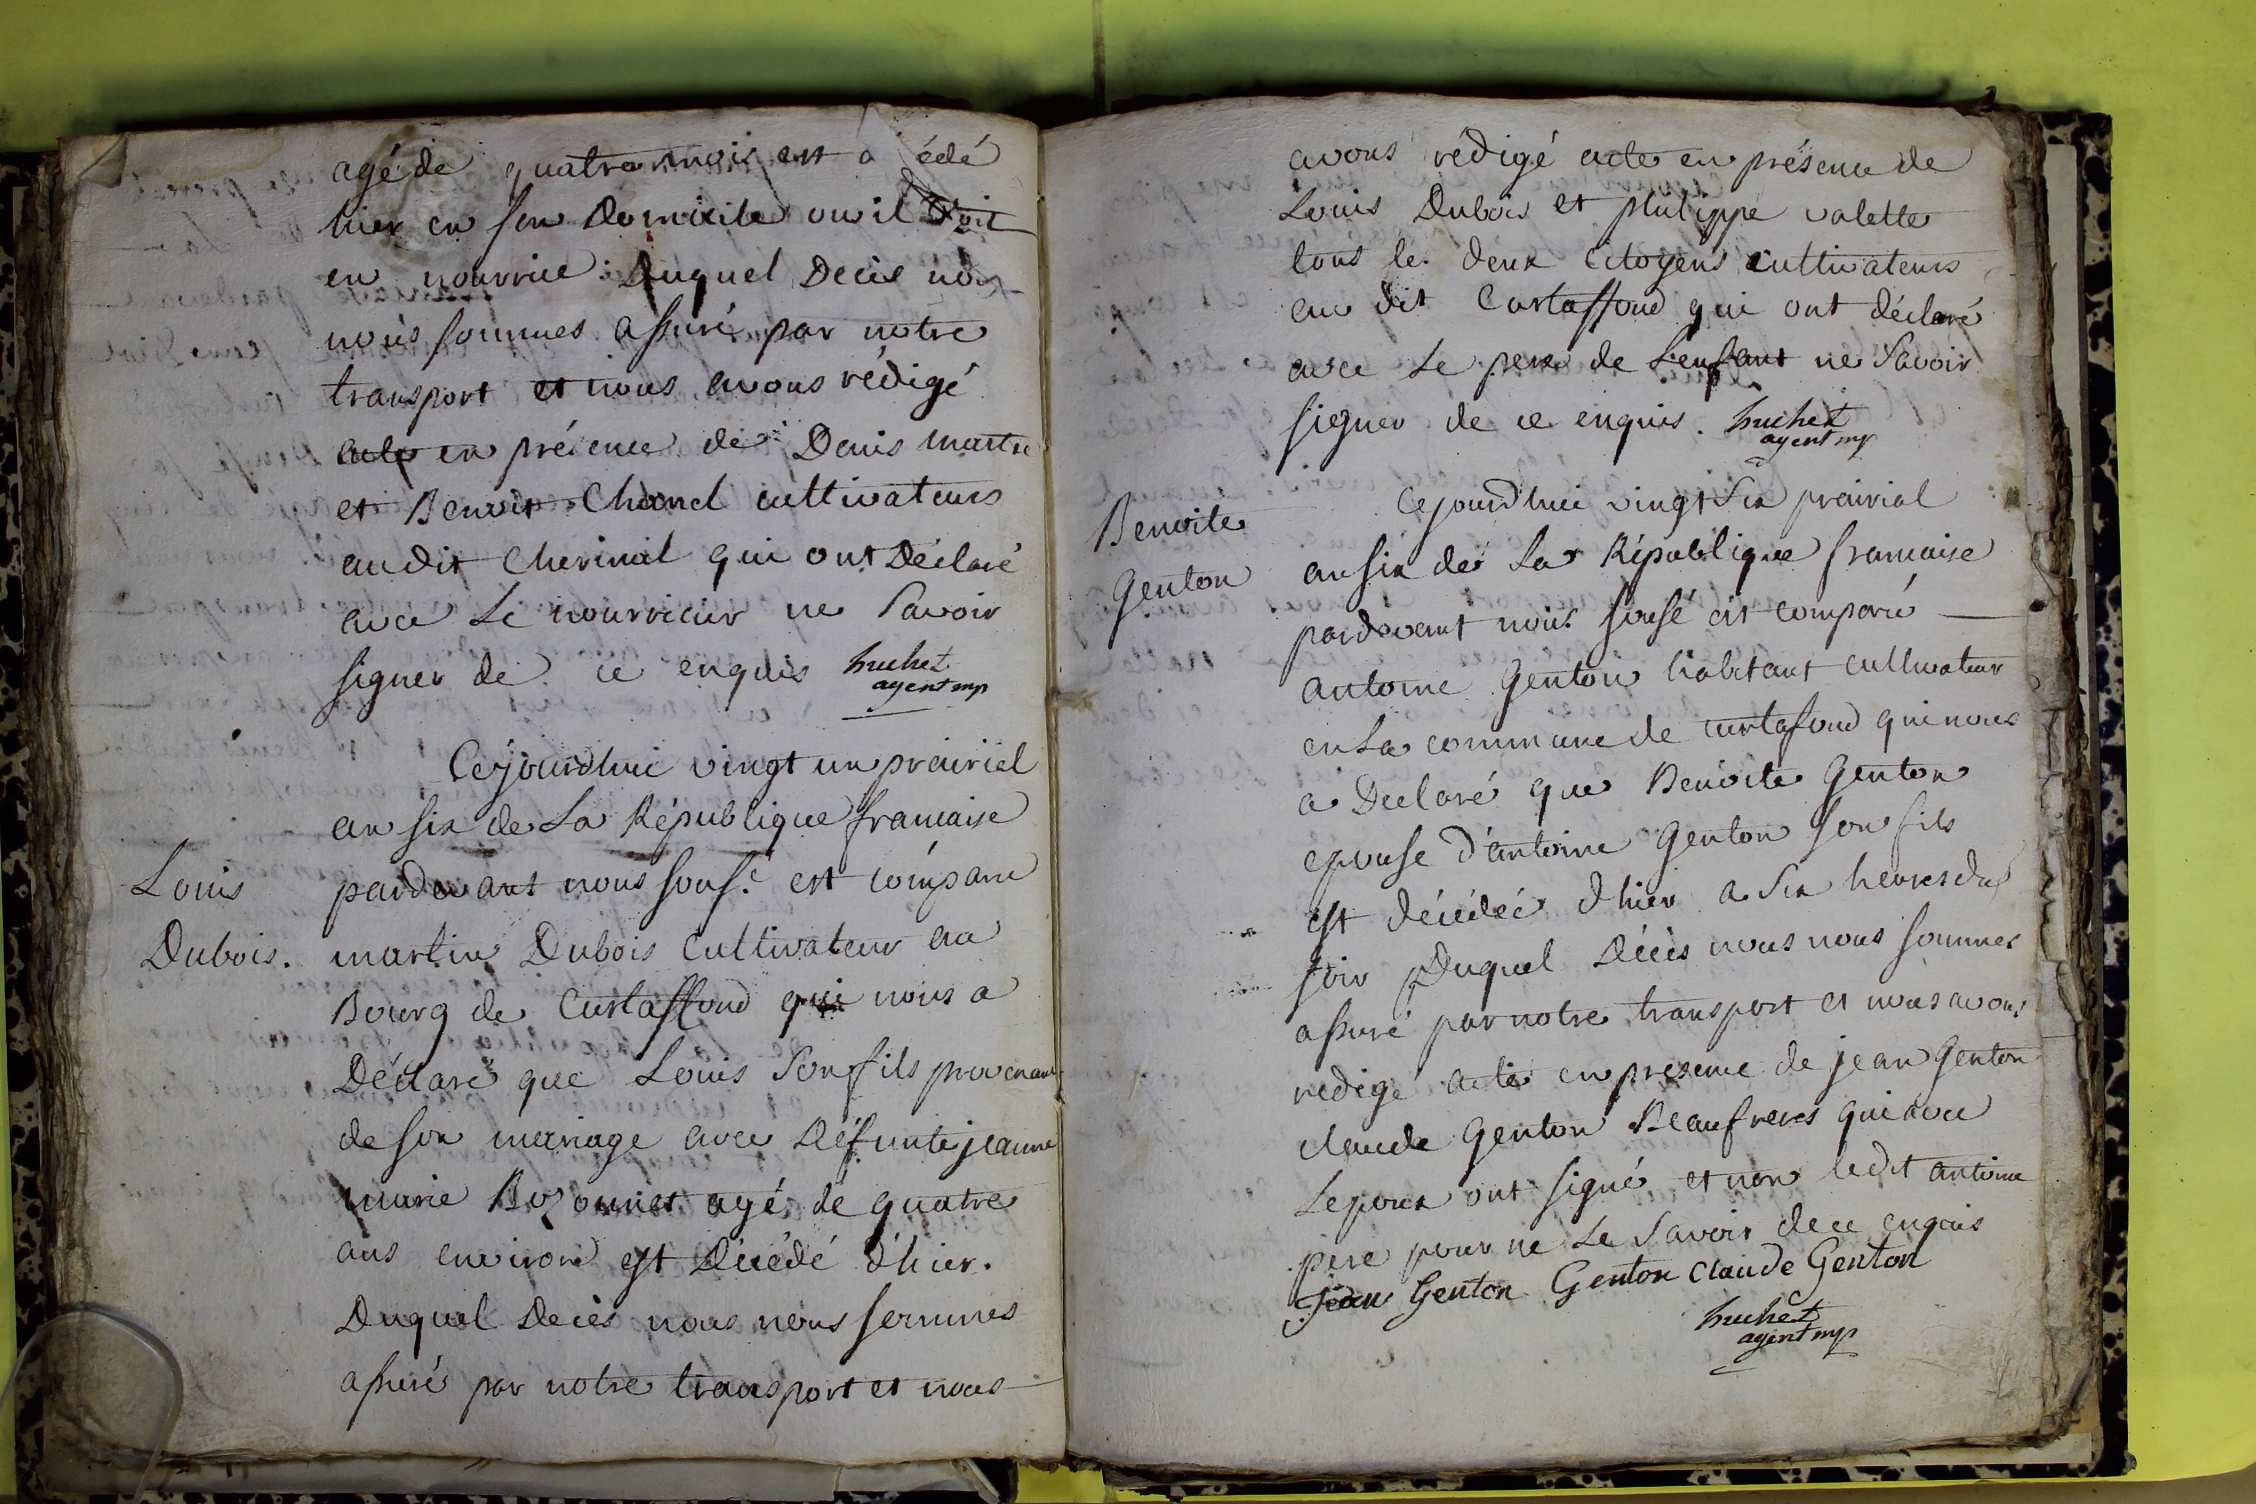 agé de quatre mois est édé
hier en son Domicile ou il
en nourrice : Duquel Decès nous
nous sommes assuré par notre
transport et nous avons rédigé
acte en présence de Denis
et Benoit cultivateurs
audit qui ont Déclaré
avec Le nourricier ne Savoir
signer de ce enquis huchet
agent mp
Cejourdhui vingt un prairiel
an six de La République francaise
Louis
pardevant nous sous.é est comparu
Dubois.
martin Dubois cultivateur au
Bourg de Curtaffond qui nous a
Déclaré que Louis Son fils provenant
de son mariage avec Défunte jeanne
marie agé de quatre
ans environ est Décédé d'hier.
Duquel Decès nous nous sommes
assuré par notre transport et nous
avons rédigé acte en présence de
Louis Dubois et philippe valette
tous le deux Citoyens cultivateurs
au dit Curtaffond qui ont déclaré
avec Le pere de L'enfant ne Savoir
signer de ce enquis. huchet
agent mp
Cejourdhui vingt Six prairial
Benoite
an six de La République francaise
Genton
pardevant nous sousé est comparu
antoine Genton habitant cultivateur
en La commune de curtafond qui nous
a Declaré que Benoite Genton
epouse d'antoine Genton son fils
est décédée d'hier a Six heures du
soir Duquel Décès nous nous sommes
assuré par notre transport et nous avons
redigé acte en presence de jean Genton
claude Genton Beaufreres qui avec
Lepoux ont signé et non ledit antoine
pere pour ne Le Savoir de ce enquis
jean Genton Genton claude Genton
huchet
agent mp